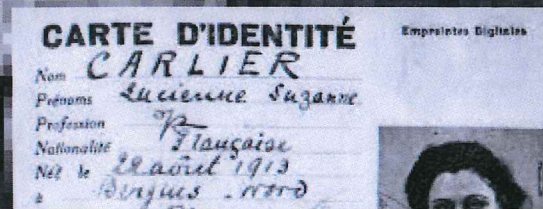 CARTE D'IDENTITÉ
Empreintes Digitales
Nom CARLIER
Prénoms Lucienne Suzanne
Profession
Nationalité Française
Née le août 1913
à Bergues Nord